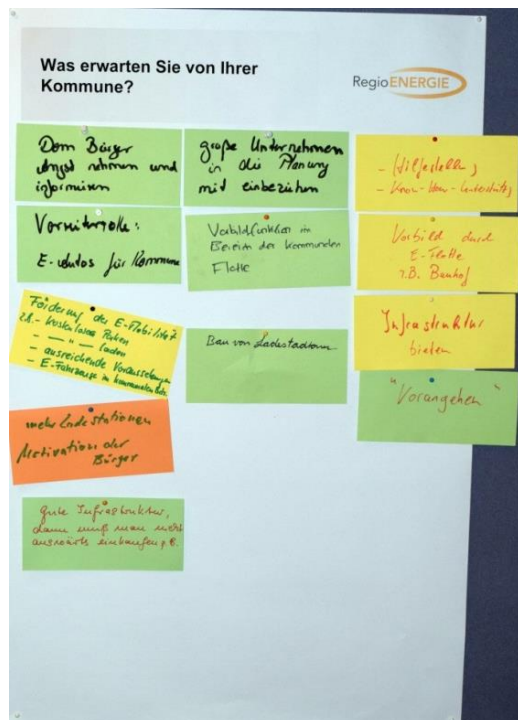 Was erwarten Sie von Ihrer
Kommune?
RegioENERGIE
Dem Bürger
Angst nehmen und
informieren
Vorreiterrolle:
E-Autos für Kommune
Förderung der E-Mobilität
z.B. - kostenloses Parken
- — " — laden
- ausreichende Voraussetzungen
- E-Fahrzeuge im kommunalen
mehr Ladestationen
Motivation der
Bürger
gute Infrastruktur,
dann muß man nicht
auswärts einkaufen z.B.
große Unternehmen
in die Planung
mit einbeziehen
Vorbildfunktion im
Bereich der kommunalen
Flotte
Bau von
- Hilfestellung
- Know-How-
Vorbild durch
E-Flotte
z.B. Bauhof
Infrastruktur
bieten
"Vorangehen"